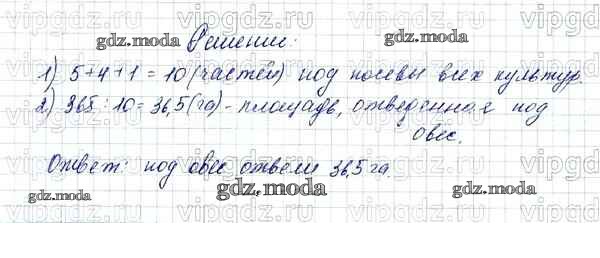 vipgdz vipgdz vipgdz vipgdz
gdz.moda Решение: gdz.moda
1) 5+4+1=10 (частей) под посевы всех культур.
2) 365:10=36,5(га) - площадь, отведенная под
овес.
Ответ: под овес отвели 36,5 га.
gdz.moda gdz.moda gdz.moda
vipgdz vipgdz vipgdz vipgdz